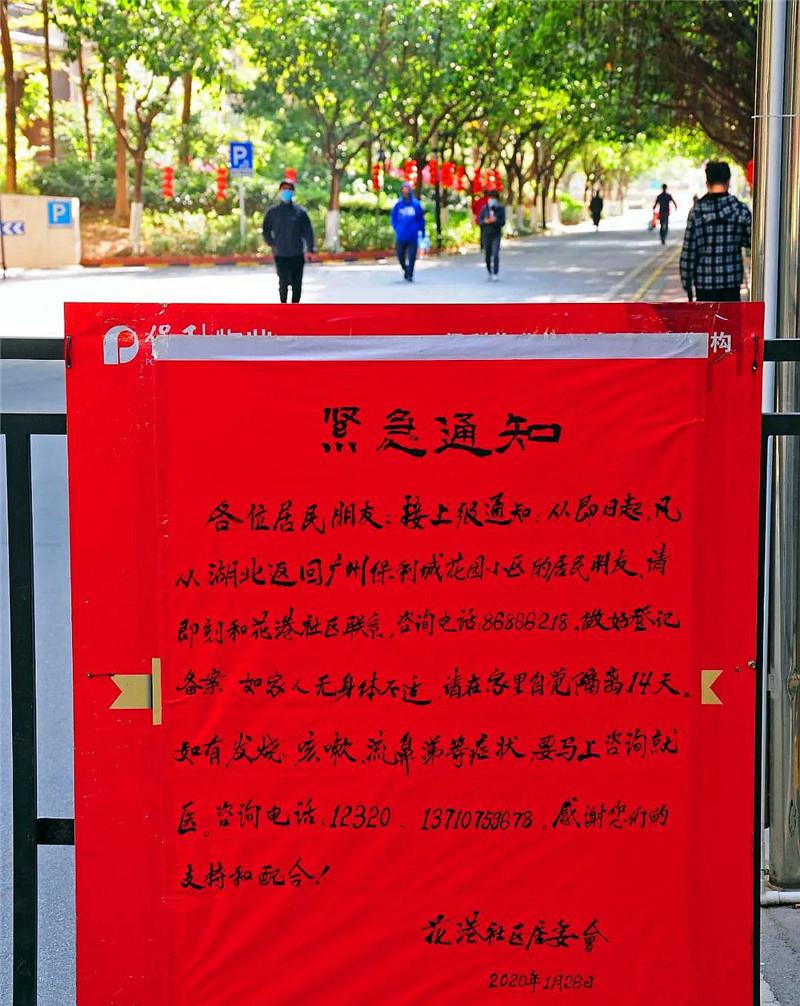 P
P
保利物业
构
紧急通知
各位居民朋友：接上级通知：从即日起，凡
从湖北返回广州保利城花园小区的居民朋友，请
即刻和花港社区联系，咨询电话：86866218，做好登记
备案，如家人无身体不适，请在家里自觉隔离14天。
如有发烧、咳嗽、流鼻涕等症状，要马上咨询就
医。咨询电话：12320、13710759678。感谢您们的
支持和配合！
花港社区居委會
2020年1月28日